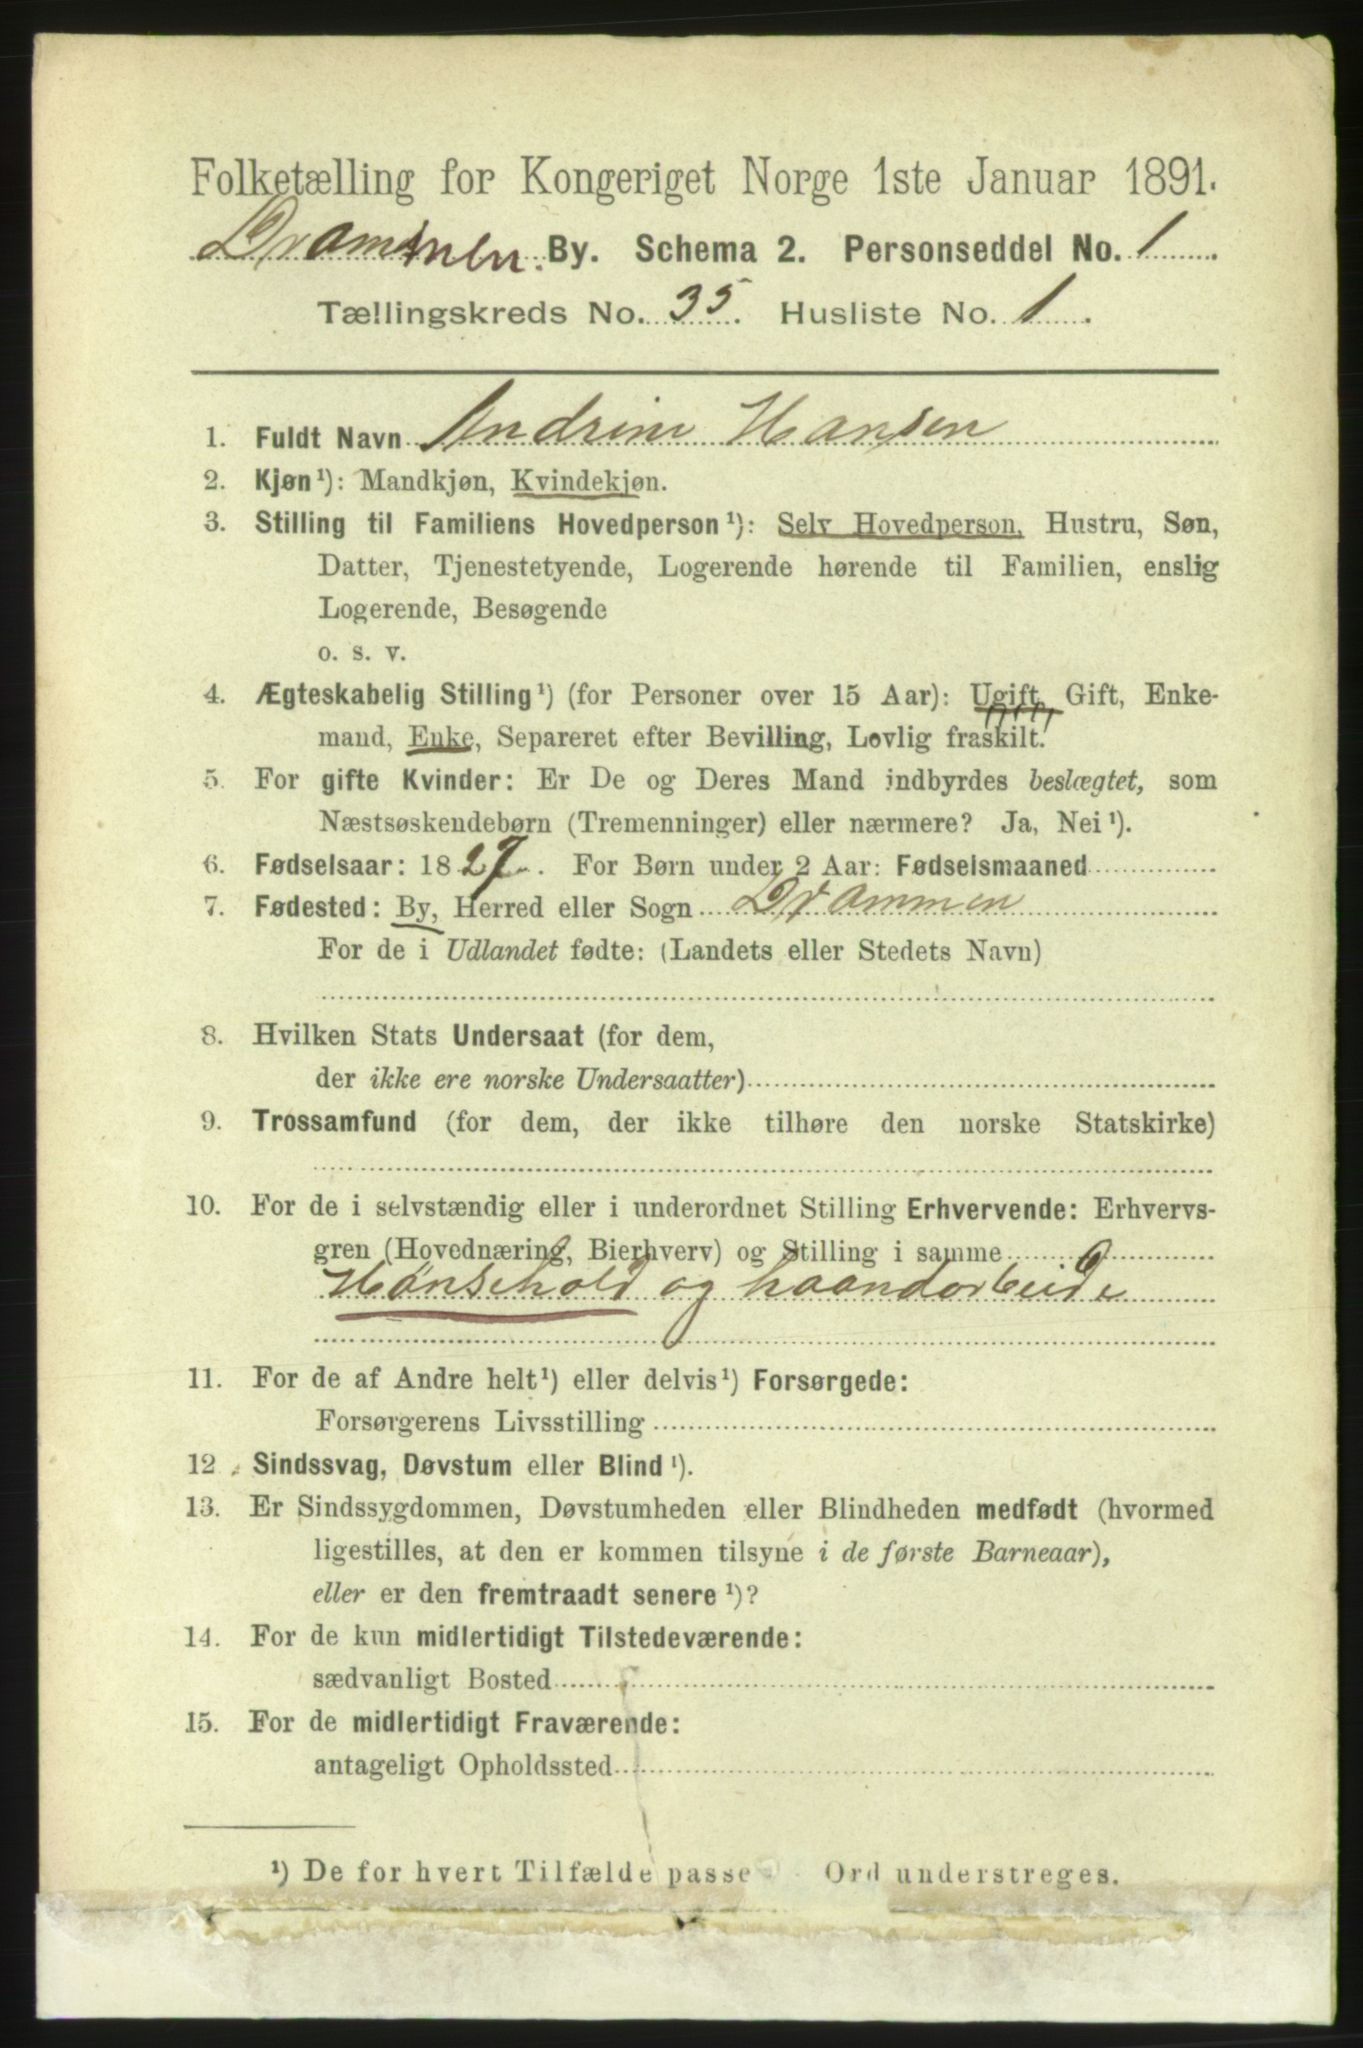 Folketælling for Kongeriget Norge 1ste Januar 1891.
Drammen. By. Schema 2. Personseddel No. 1
Tællingskreds No. 35. Husliste No. 1.
1. Fuldt Navn Andrine Hansen
2. Kjøn¹): Mandkjøn, Kvindekjøn.
3. Stilling til Familiens Hovedperson¹): Selv Hovedperson, Hustru, Søn,
Datter, Tjenestetyende, Logerende hørende til Familien, enslig
Logerende, Besøgende
o. s. v.
4. Ægteskabelig Stilling¹) (for Personer over 15 Aar): Ugift, Gift, Enke-
mand, Enke, Separeret efter Bevilling, Lovlig fraskilt.
5. For gifte Kvinder: Er De og Deres Mand indbyrdes beslægtet, som
Næstsøskendebørn (Tremenninger) eller nærmere? Ja, Nei¹).
6. Fødselsaar: 1827. For Børn under 2 Aar: Fødselsmaaned
7. Fødested: By, Herred eller Sogn Drammen
For de i Udlandet fødte: (Landets eller Stedets Navn)
8. Hvilken Stats Undersaat (for dem,
der ikke ere norske Undersaatter)
9. Trossamfund (for dem, der ikke tilhøre den norske Statskirke)
10. For de i selvstændig eller i underordnet Stilling Erhvervende: Erhvervs-
gren (Hovednæring, Bierhverv) og Stilling i samme
Hønsehold og haandarbeide
11. For de af Andre helt¹) eller delvis¹) Forsørgede:
Forsørgerens Livsstilling
12. Sindssvag, Døvstum eller Blind¹).
13. Er Sindssygdommen, Døvstumheden eller Blindheden medfødt (hvormed
ligestilles, at den er kommen tilsyne i de første Barneaar),
eller er den fremtraadt senere¹)?
14. For de kun midlertidigt Tilstedeværende:
sædvanligt Bosted
15. For de midlertidigt Fraværende:
antageligt Opholdssted
¹) De for hvert Tilfælde passe Ord understreges.